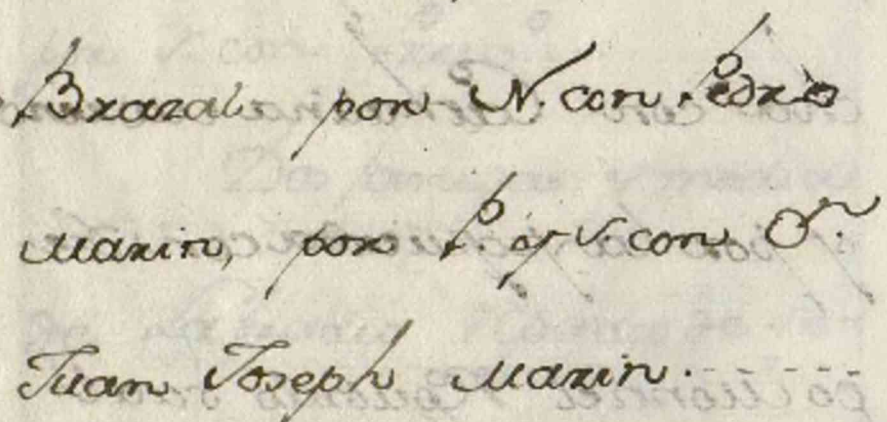 Brazal por N. con Pedro
Marin, por P. y V. con Dn.
Juan Joseph Marin.